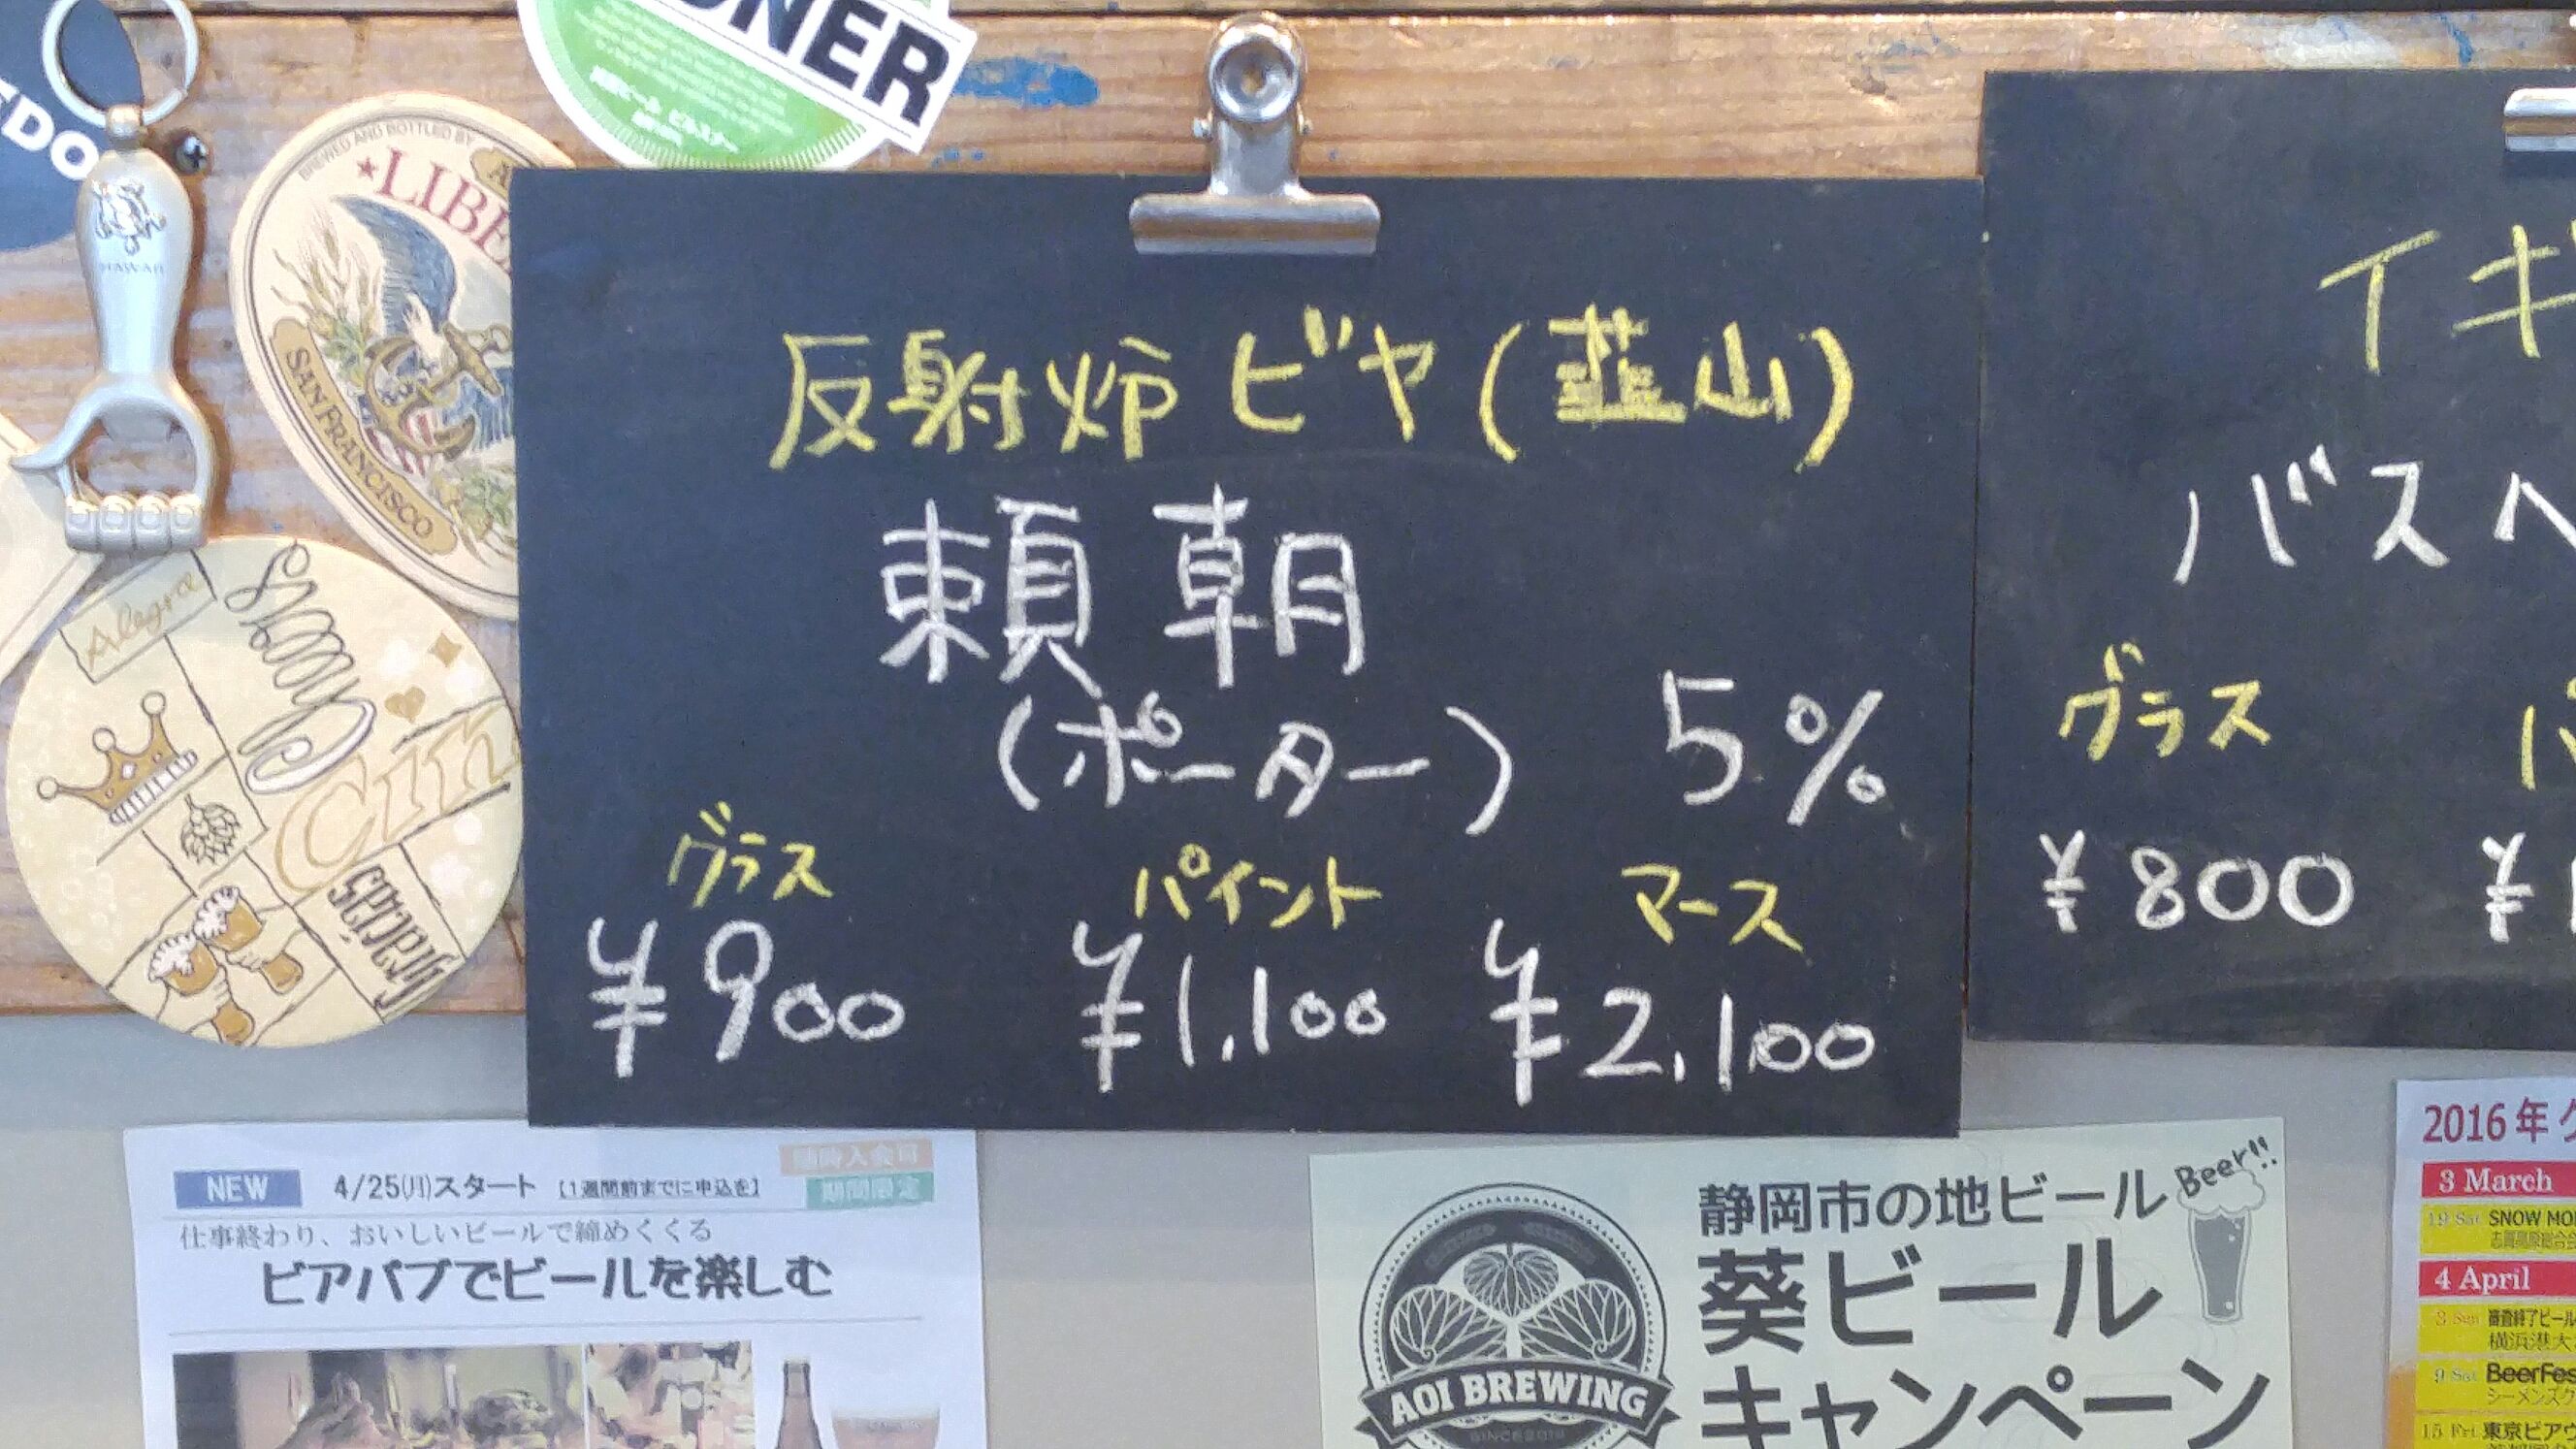 EDO
HAWAII
BREWED AND BOTTLED BY
LIBE
SAN FRANCISCO
NER
Alegra
Cheers
Cin
gracias
反射炉ビヤ(韮山)
頼朝
(ポーター) 5%
グラス パイント マース
¥900 ¥1,100 ¥2,100
イギ
バスペ
グラス パ
¥800 ¥1
NEW 4/25(月)スタート 【1週間前までに申込を】
随時入会可
期間限定
仕事終わり、おいしいビールで締めくくる
ビアパブでビールを楽しむ
静岡市の地ビール
Beer!!
葵ビール
キャンペーン
AOI BREWING
2016年ク
3 March
19 Sat SNOW MO
4 April
3 Sun 審査終了ビール
横浜港大
9 Sat BeerFes
シーメンズク
15 Fri 東京ビアウ